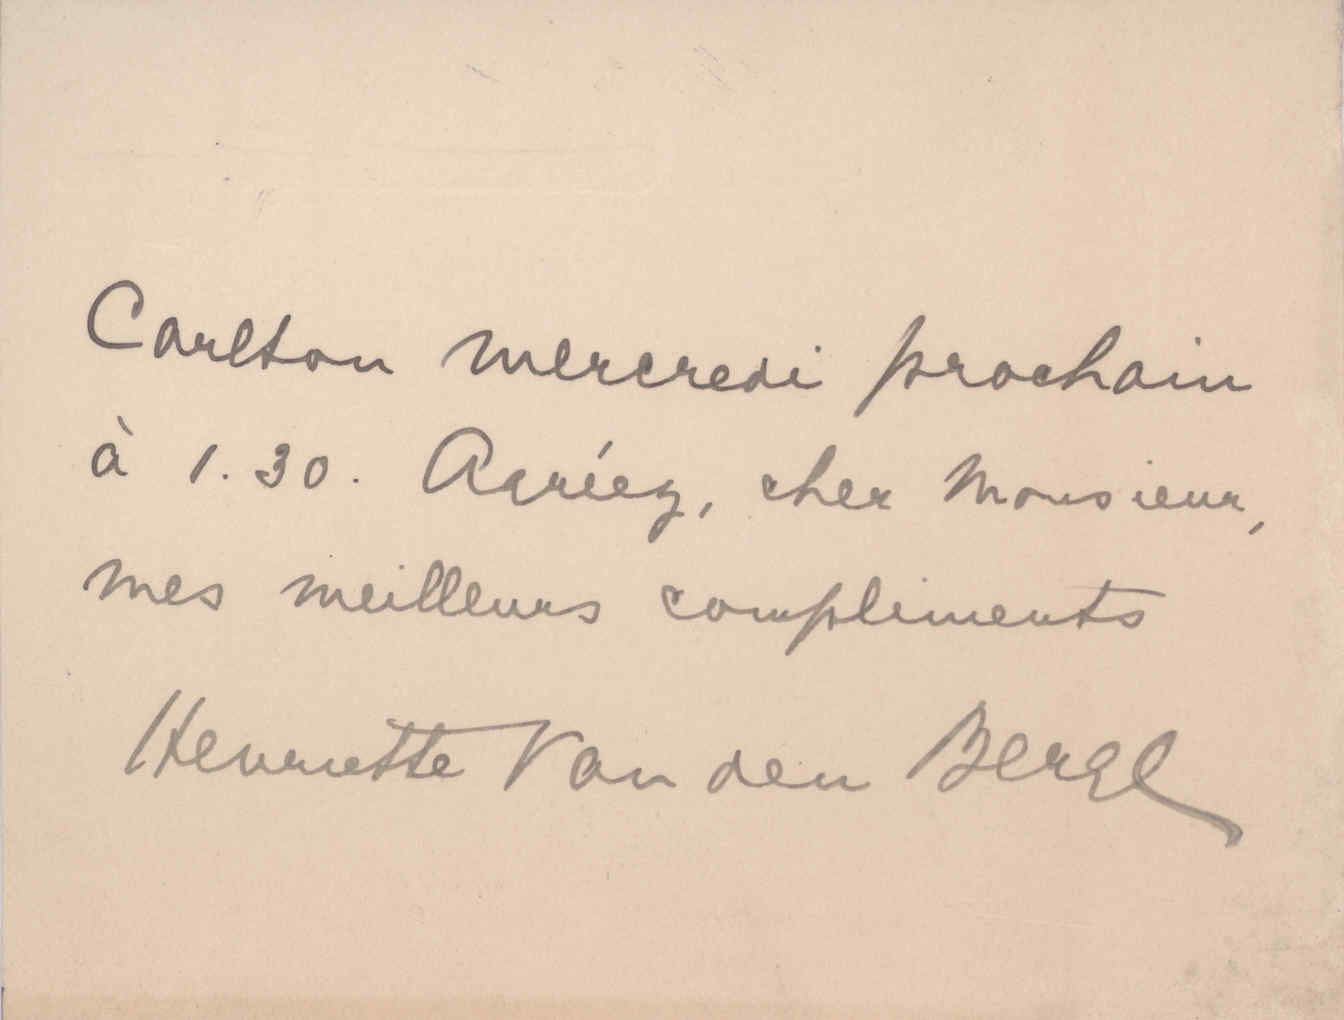 Carlton mercredi prochain
à 1.30. Agréez, cher Monsieur,
mes meilleurs compliments
Henriette Van den Bergh